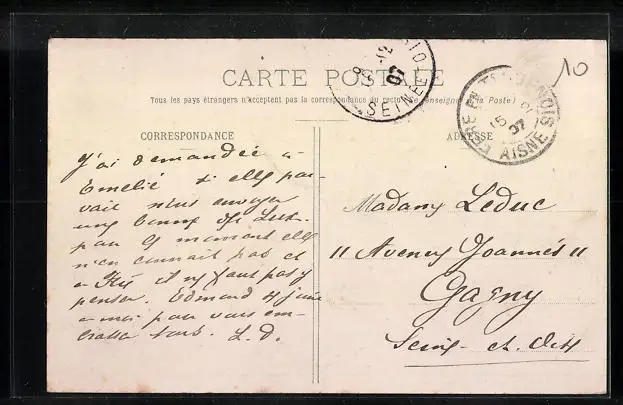 CARTE POSTALE
Tous les pays étrangers n'acceptent pas la correspondance au recto (Se renseigner à la Poste)
CORRESPONDANCE
ADRESSE
10
SEINE
07
FÈRE EN TARDENOIS
15
07
AISNE
J'ai demandée a
Emelie si elle pou-
vait nous envoyer
une bonne de
pour le moment elle
n'en connait pas et
a il ny faut pas y
penser. Edmond se joint
a moi pour vous em-
brasser tous. L. D.
Madame Leduc
11 Avenue Joannès 11
Gagny
Seine-et-Oise